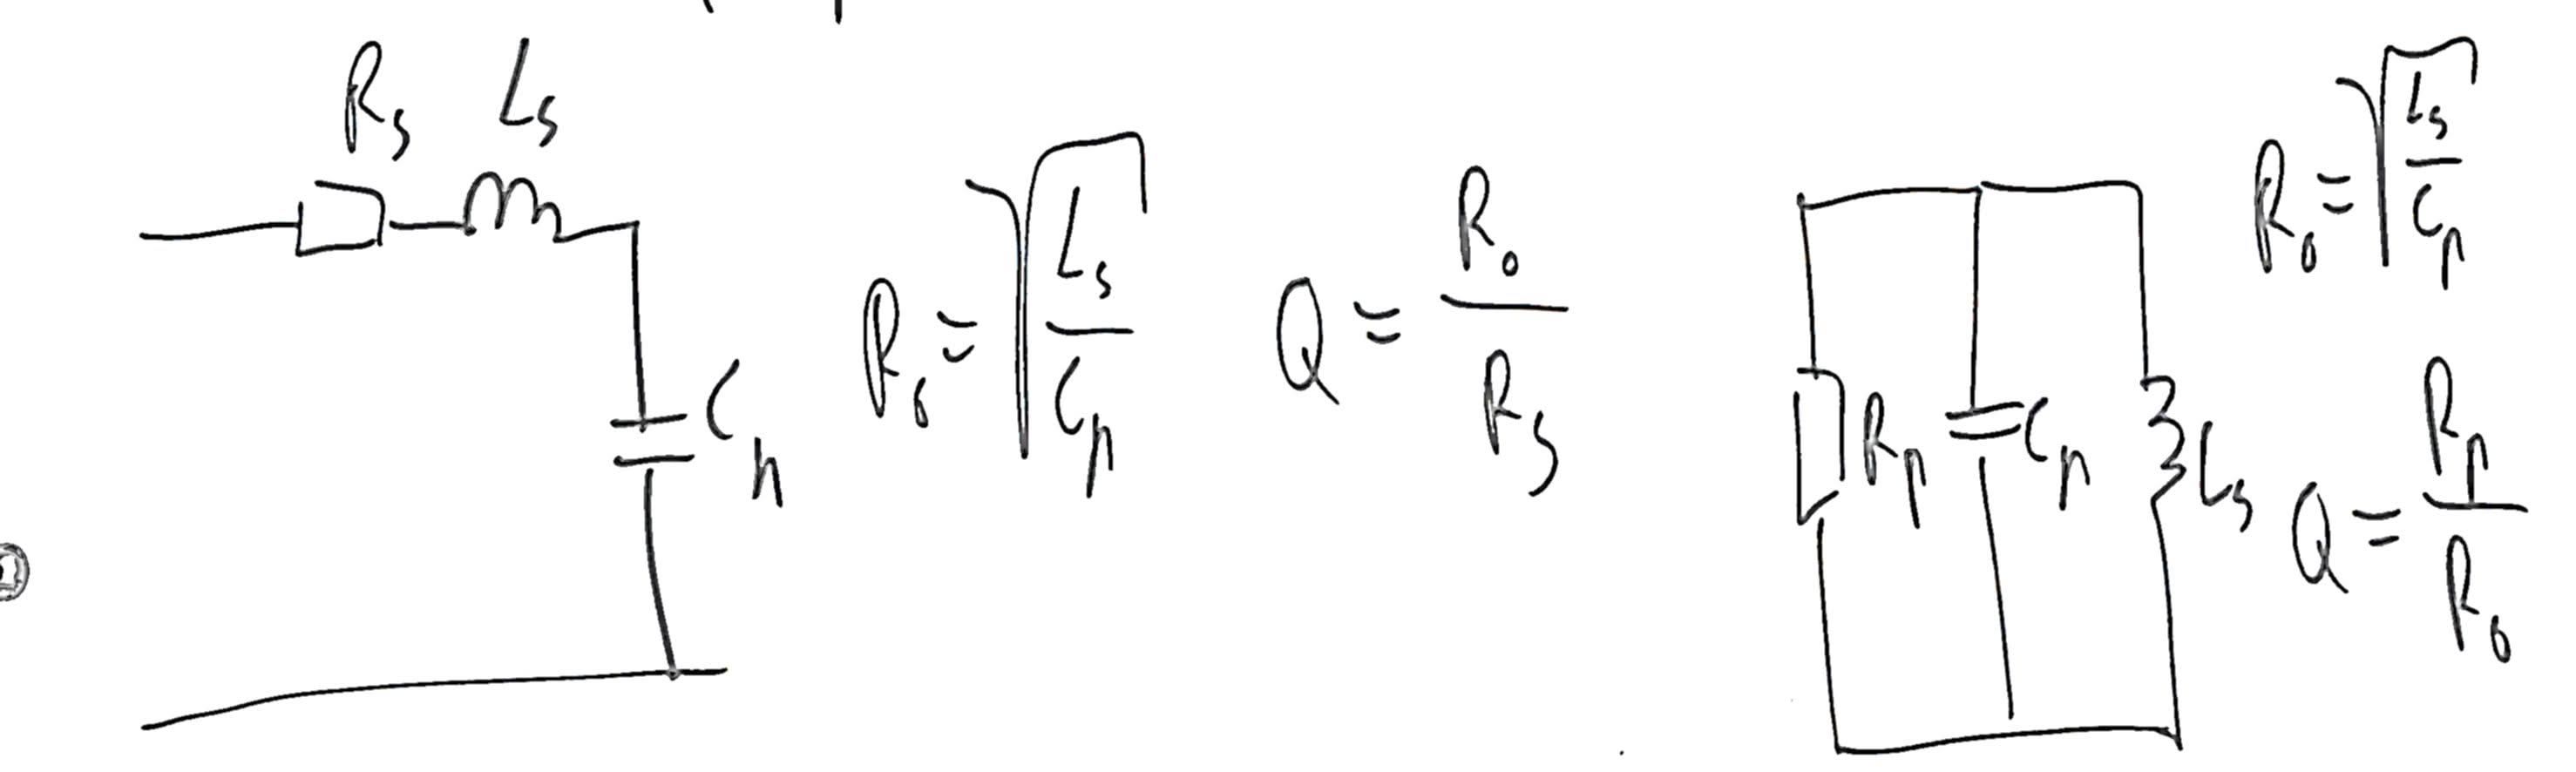 R_s L_s
C_n
R_0 = √(L_s / C_p)
Q = R_0 / R_s
R_p C_p L_s
R_0 = √(L_s / C_p)
Q = R_p / R_0